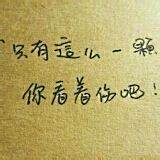 “只有這么一顆
你看着伤吧!